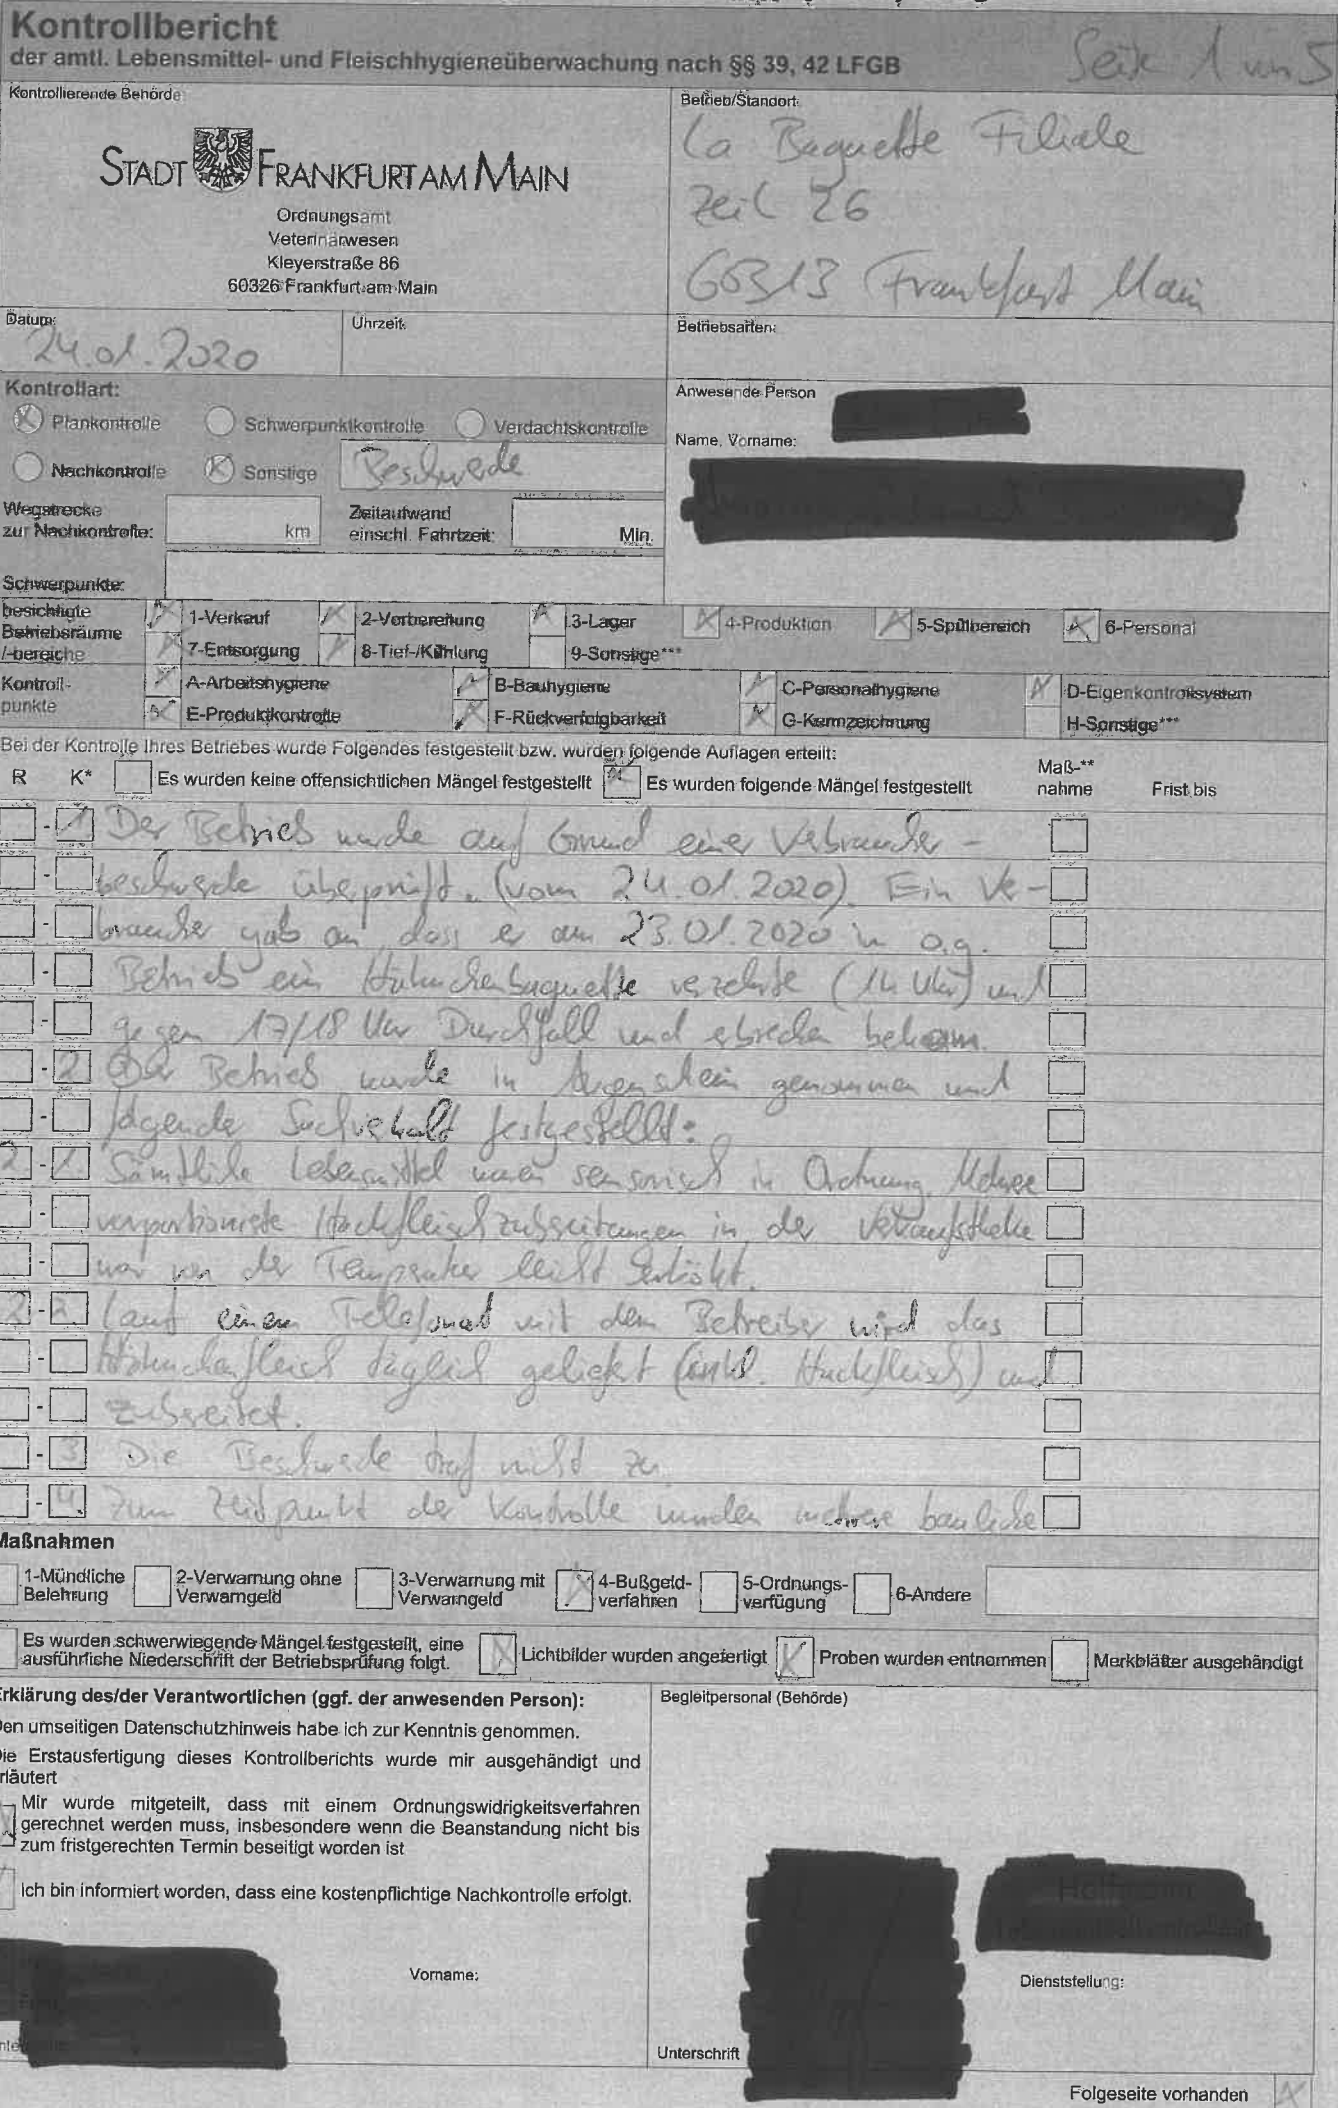 Kontrollbericht
der amtl. Lebensmittel- und Fleischhygieneüberwachung nach §§ 39, 42 LFGB
Seite 1 von 5
Kontrollierende Behörde
STADT FRANKFURT AM MAIN
Ordnungsamt
Veterinärwesen
Kleyerstraße 86
60326 Frankfurt am Main
Betrieb/Standort:
La Baguette Filiale
Zeil 26
60313 Frankfurt Main
Datum:
24.01.2020
Uhrzeit:
Betriebsarten:
Kontrollart:
Plankontrolle Schwerpunktkontrolle Verdachtskontrolle
Nachkontrolle Sonstige Beschwerde
Wegstrecke
zur Nachkontrolle: km
Zeitaufwand
einschl. Fahrtzeit: Min.
Schwerpunkte:
Anwesende Person
Name, Vorname:
besichtigte
Betriebsräume
/-bereiche
1-Verkauf 2-Vorbereitung 3-Lager 4-Produktion 5-Spülbereich 6-Personal
7-Entsorgung 8-Tief-/Kühlung 9-Sonstige***
Kontroll-
punkte
A-Arbeitshygiene B-Bauhygiene C-Personalhygiene D-Eigenkontrollsystem
E-Produktkontrolle F-Rückverfolgbarkeit G-Kennzeichnung H-Sonstige***
Bei der Kontrolle Ihres Betriebes wurde Folgendes festgestellt bzw. wurden folgende Auflagen erteilt:
R K* Es wurden keine offensichtlichen Mängel festgestellt Es wurden folgende Mängel festgestellt Maß-** nahme Frist bis
- 1 Der Betrieb wurde auf Grund einer Verbraucher-
- beschwerde überprüft. (vom 24.01.2020). Ein Ver-
- braucher gab an, dass er am 23.01.2020 in o.g.
- Betrieb ein Hähnchenbaguette verzehrte (14 Uhr) und
- gegen 17/18 Uhr Durchfall und erbrechen bekam.
- 2 Der Betrieb wurde in Augenschein genommen und
- folgende Sachverhalt festgestellt:
2 - 1 Sämtliche Lebensmittel waren sensorisch in Ordnung. Mehrere
- vorportionierte Hackfleischzubereitungen in der Verkaufstheke
- war von der Temperatur leicht erhöht.
2 - 2 Laut einem Telefonat mit dem Betreiber wird das
- Hähnchenfleisch täglich geliefert (inkl. Hackfleisch) und
- zubereitet.
- 3 Die Beschwerde traf nicht zu
- 4. Zum Zeitpunkt der Kontrolle wurden mehrere bauliche
Maßnahmen
1-Mündliche
Belehrung
2-Verwarnung ohne
Verwarngeld
3-Verwarnung mit
Verwarngeld
4-Bußgeld-
verfahren
5-Ordnungs-
verfügung
6-Andere
Es wurden schwerwiegende Mängel festgestellt, eine
ausführliche Niederschrift der Betriebsprüfung folgt.
Lichtbilder wurden angefertigt Proben wurden entnommen Merkblätter ausgehändigt
Erklärung des/der Verantwortlichen (ggf. der anwesenden Person):
Den umseitigen Datenschutzhinweis habe ich zur Kenntnis genommen.
Die Erstausfertigung dieses Kontrollberichts wurde mir ausgehändigt und
erläutert
Mir wurde mitgeteilt, dass mit einem Ordnungswidrigkeitsverfahren
gerechnet werden muss, insbesondere wenn die Beanstandung nicht bis
zum fristgerechten Termin beseitigt worden ist
Ich bin informiert worden, dass eine kostenpflichtige Nachkontrolle erfolgt.
Vorname:
Begleitpersonal (Behörde)
Dienststellung:
Unterschrift
Folgeseite vorhanden